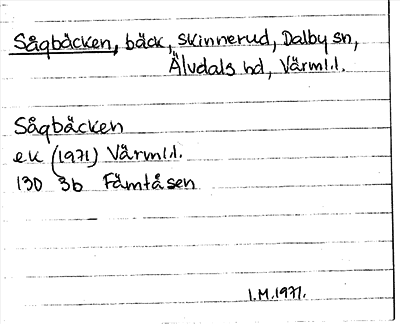 Sågbäcken, bäck, Skinnerud, Dalby sn,
Älvdals hd, Värml.l.
Sågbäcken
ek (1971) Värml.l.
130 3b Fämtåsen
I.M.1971.